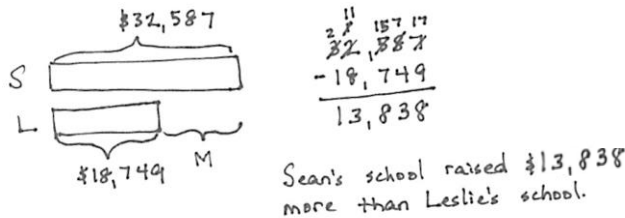 $32,587
S
L
$18,749
M
11
2 1 15 7 17
32,587
-18,749
13,838
Sean's school raised $13,838
more than Leslie's school.